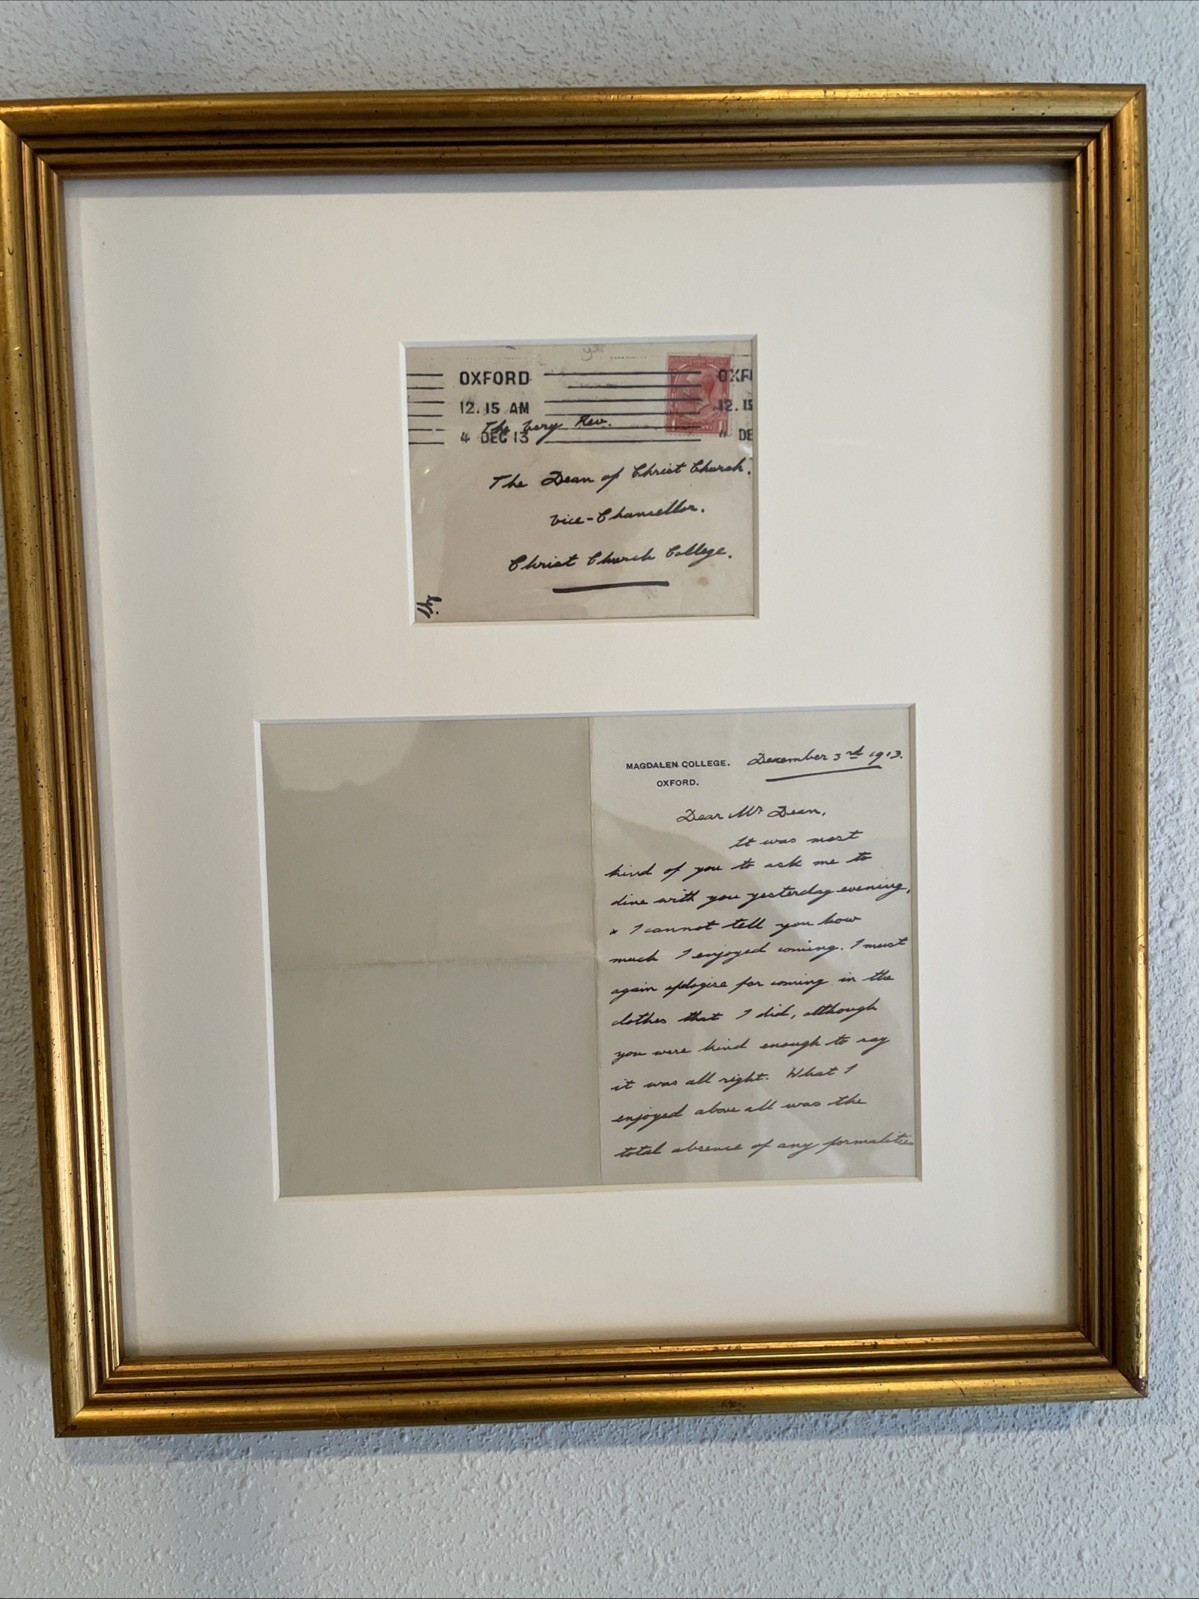 OXFORD
12. 15 AM
4 DEC 13
OXF
12. 15
DE
The Very Rev.
The Dean of Christ Church.
Vice-Chancellor.
Christ Church College.
MAGDALEN COLLEGE.
OXFORD.
December 3rd 1913.
Dear Mr Dean,
It was most
kind of you to ask me to
dine with you yesterday evening,
& I cannot tell you how
much I enjoyed coming. I must
again apologise for coming in the
clothes that I did, although
you were kind enough to say
it was all right. What I
enjoyed above all was the
total absence of any formalities